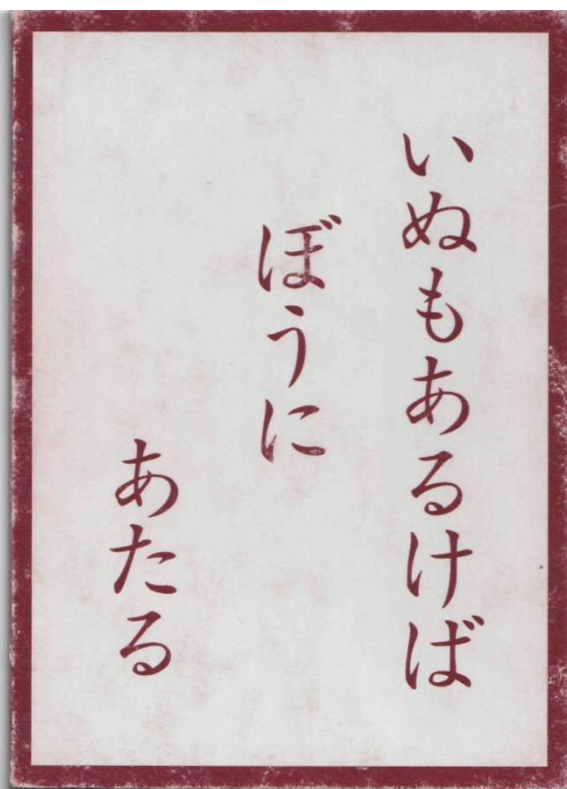 いぬもあるけば
ぼうに
あたる